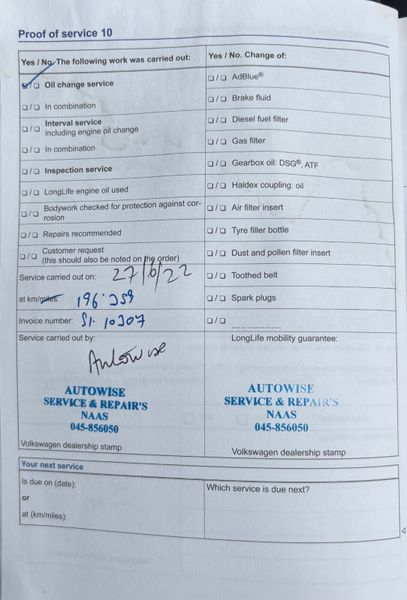 Proof of service 10
Yes / No. The following work was carried out:
☑/❏ Oil change service
❏/❏ In combination
❏/❏ Interval service
including engine oil change
❏/❏ In combination
❏/❏ Inspection service
❏/❏ LongLife engine oil used
❏/❏ Bodywork checked for protection against cor-
rosion
❏/❏ Repairs recommended
❏/❏ Customer request
(this should also be noted on the order)
Service carried out on: 27/6/22
at km/miles: 196'359
Invoice number: SI-10307
Service carried out by:
Autowise
AUTOWISE
SERVICE & REPAIR'S
NAAS
045-856050
Volkswagen dealership stamp
Yes / No. Change of:
❏/❏ AdBlue®
❏/❏ Brake fluid
❏/❏ Diesel fuel filter
❏/❏ Gas filter
❏/❏ Gearbox oil: DSG®, ATF
❏/❏ Haldex coupling: oil
❏/❏ Air filter insert
❏/❏ Tyre filler bottle
❏/❏ Dust and pollen filter insert
❏/❏ Toothed belt
❏/❏ Spark plugs
❏/❏ .....................
LongLife mobility guarantee:
AUTOWISE
SERVICE & REPAIR'S
NAAS
045-856050
Volkswagen dealership stamp
Your next service
Is due on (date):
or
at (km/miles):
Which service is due next?